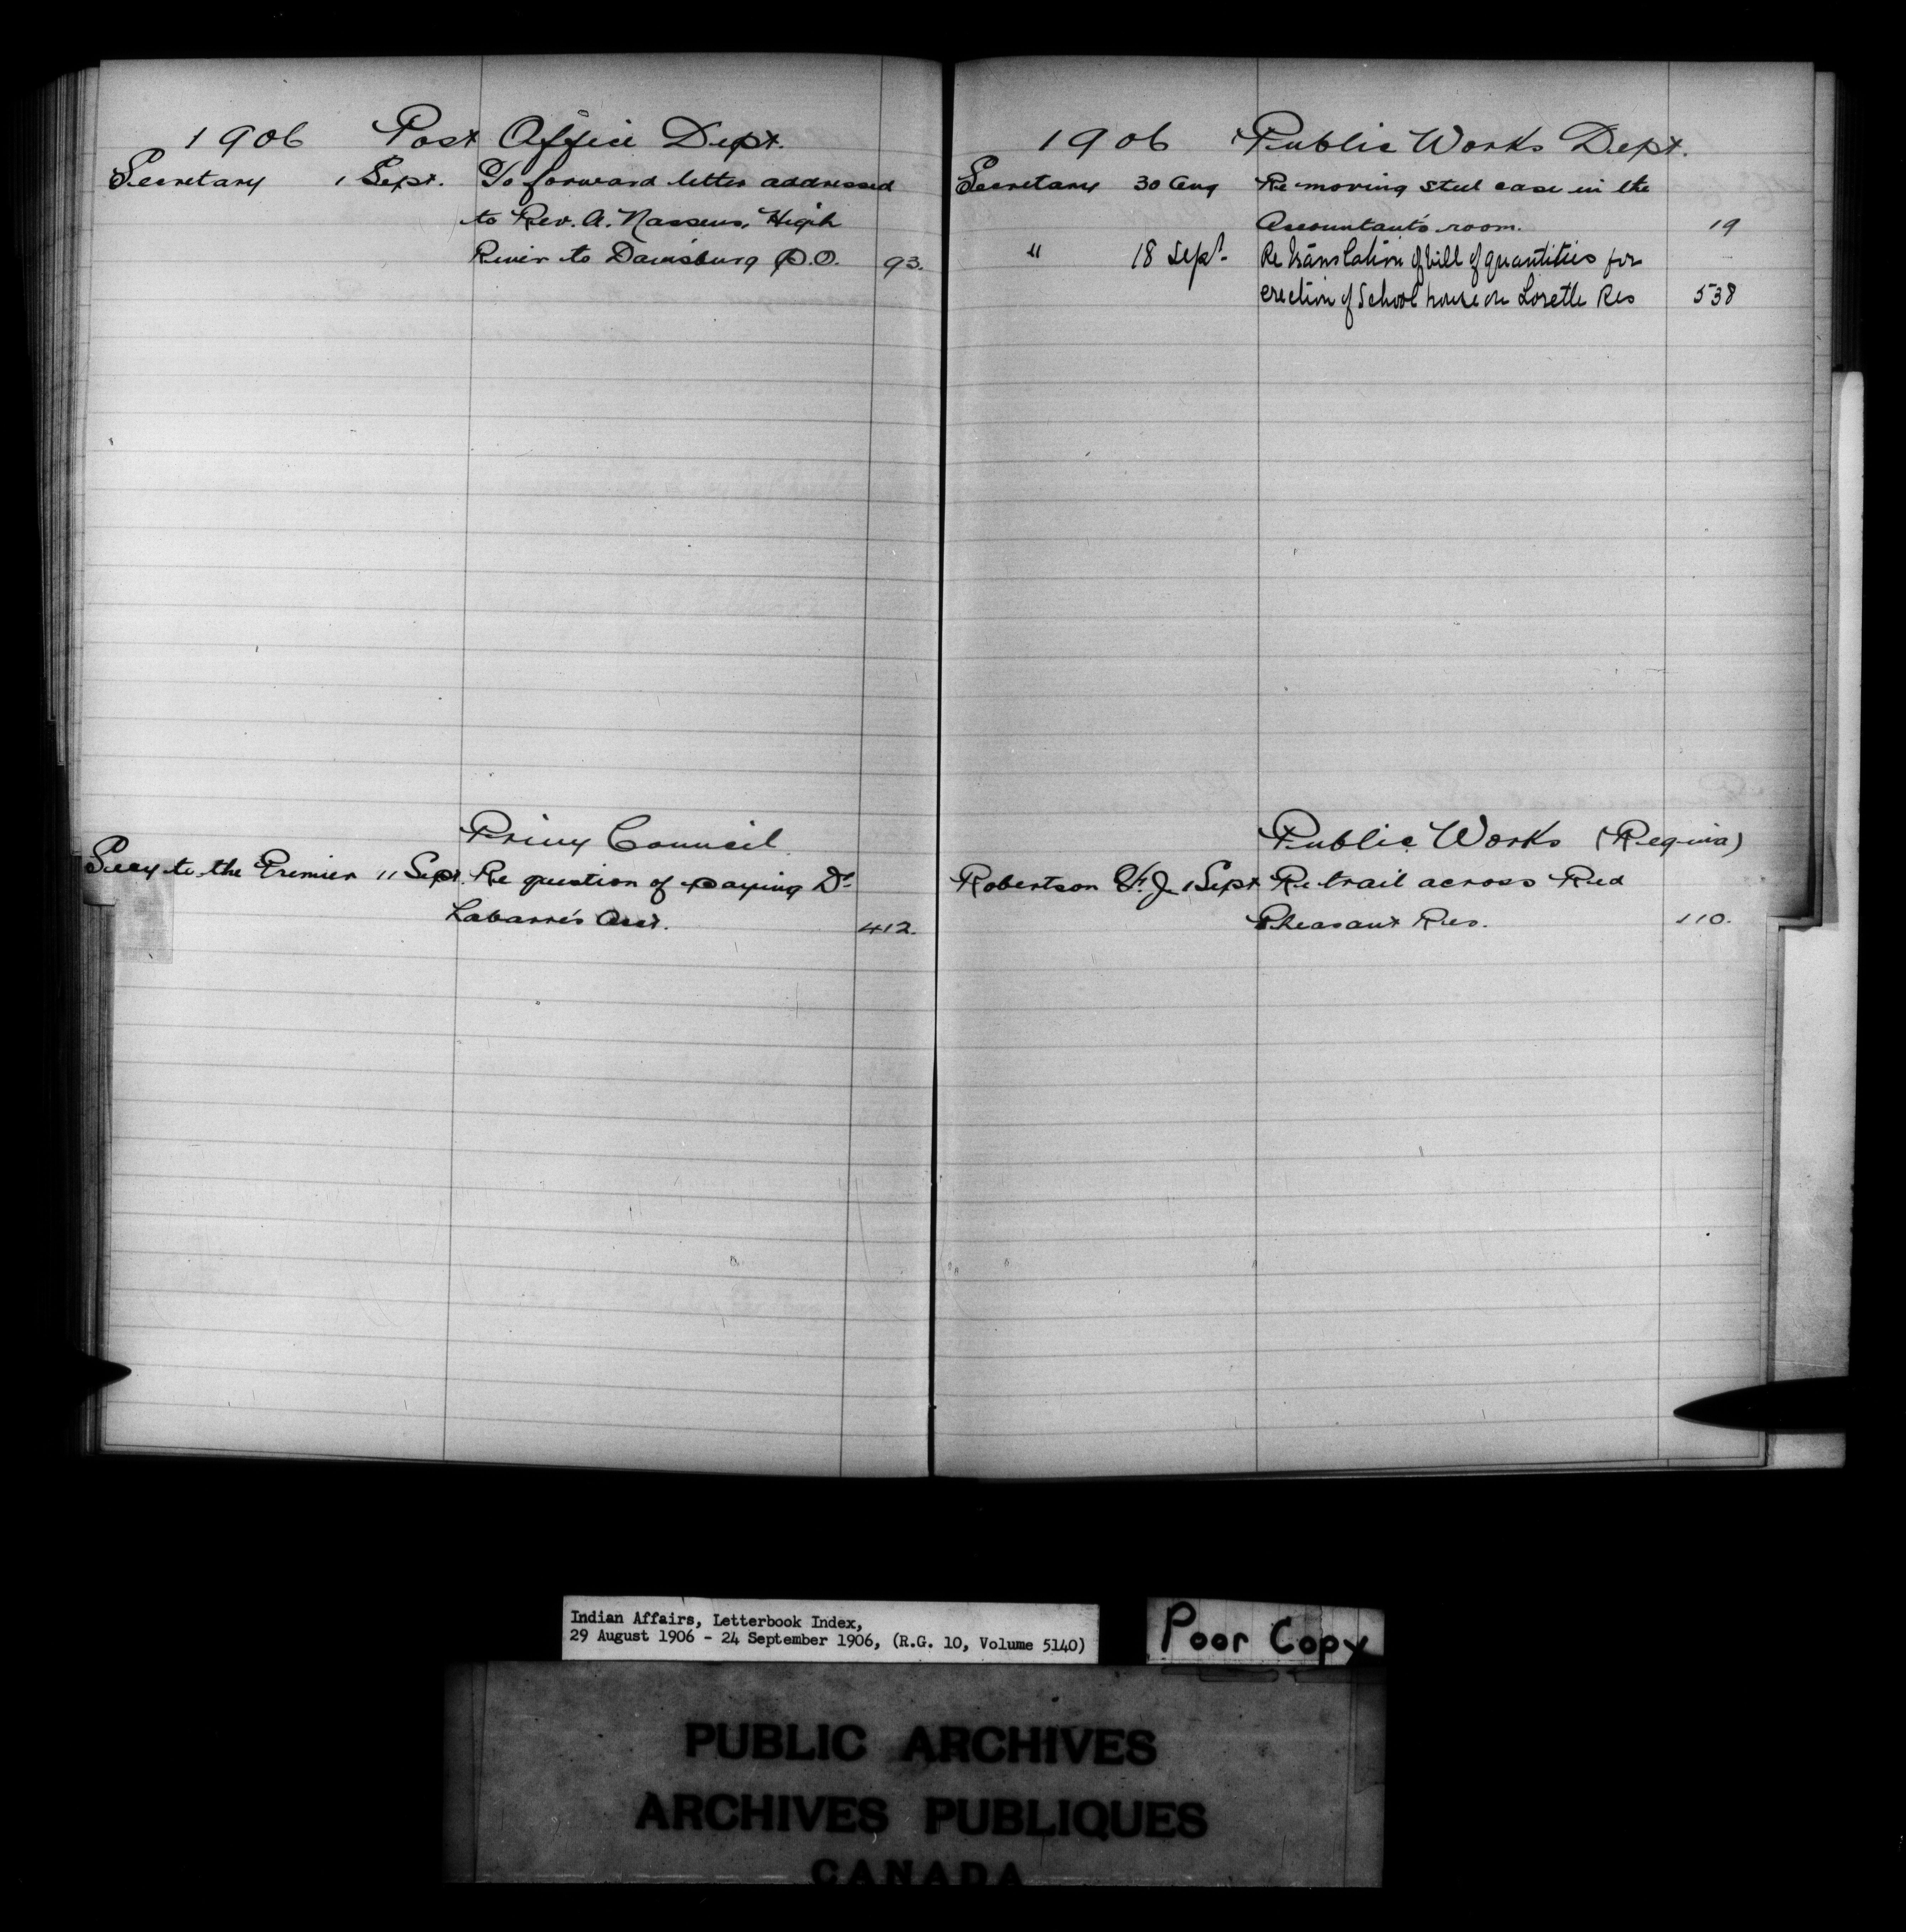 1906 Post Office Dept.
Secretary 1 Sept. To forward letter addressed
to Rev. A. Naessens, High
River to Davisburg P.O. 93.
Privy Council
Secy to the Premier 11 Sept. Re question of paying Dr
Labarre's Acct. 412.
1906 Public Works Dept.
Secretary 30 Aug Re moving steel case in the
Accountant's room. 19
" 18 Sept. Re translation of bill of quantities for
erection of School house on Lorette Res 538
Public Works (Regina)
Robertson F. J. 1 Sept Re trail across Red
Pheasant Res. 110.
Indian Affairs, Letterbook Index,
29 August 1906 - 24 September 1906, (R.G. 10, Volume 5140)
Poor Copy
PUBLIC ARCHIVES
ARCHIVES PUBLIQUES
CANADA